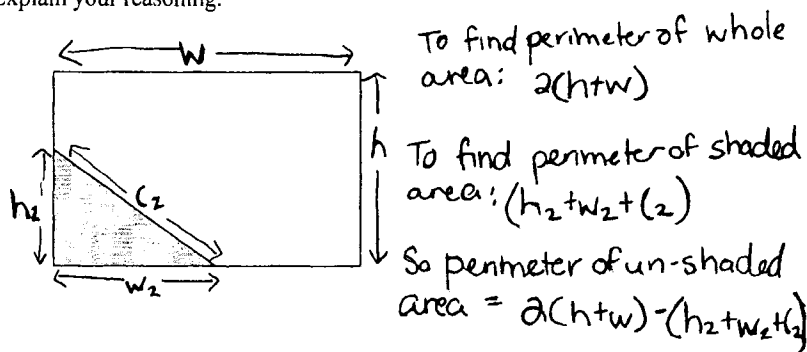 Explain your reasoning.
W
To find perimeter of whole
area: 2(h+w)
h
To find perimeter of shaded
area: (h₂+w₂+C₂)
h₂
C₂
w₂
So perimeter of un-shaded
area = 2(h+w)-(h₂+w₂+C₂)